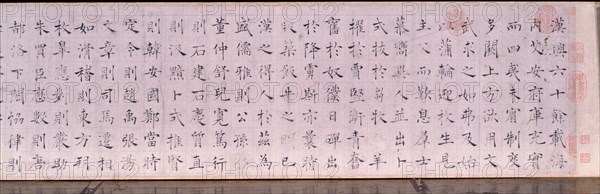 漢興六十餘載海
內艾安府庫充實
而四夷未賓制度
多闕上方欲用文
武求之如弗及始
以蒲輪迎枚生見
主父而歎息羣士
慕嚮異人並出卜
式拔於芻牧弘羊
擢於賈豎衛青奮
奮於奴僕日磾出
於降虜斯亦曩時
版築飯牛之朋已
漢之得人於茲為
盛儒雅則公孫弘
董仲舒兒寬篤行
則石建石慶質直
則汲黯卜式推賢
則韓安國鄭當時
定令則趙禹張湯
文章則司馬遷相
如滑稽則東方朔
枚皋應對則嚴助
朱買臣歷數則唐
都洛下閎協律則